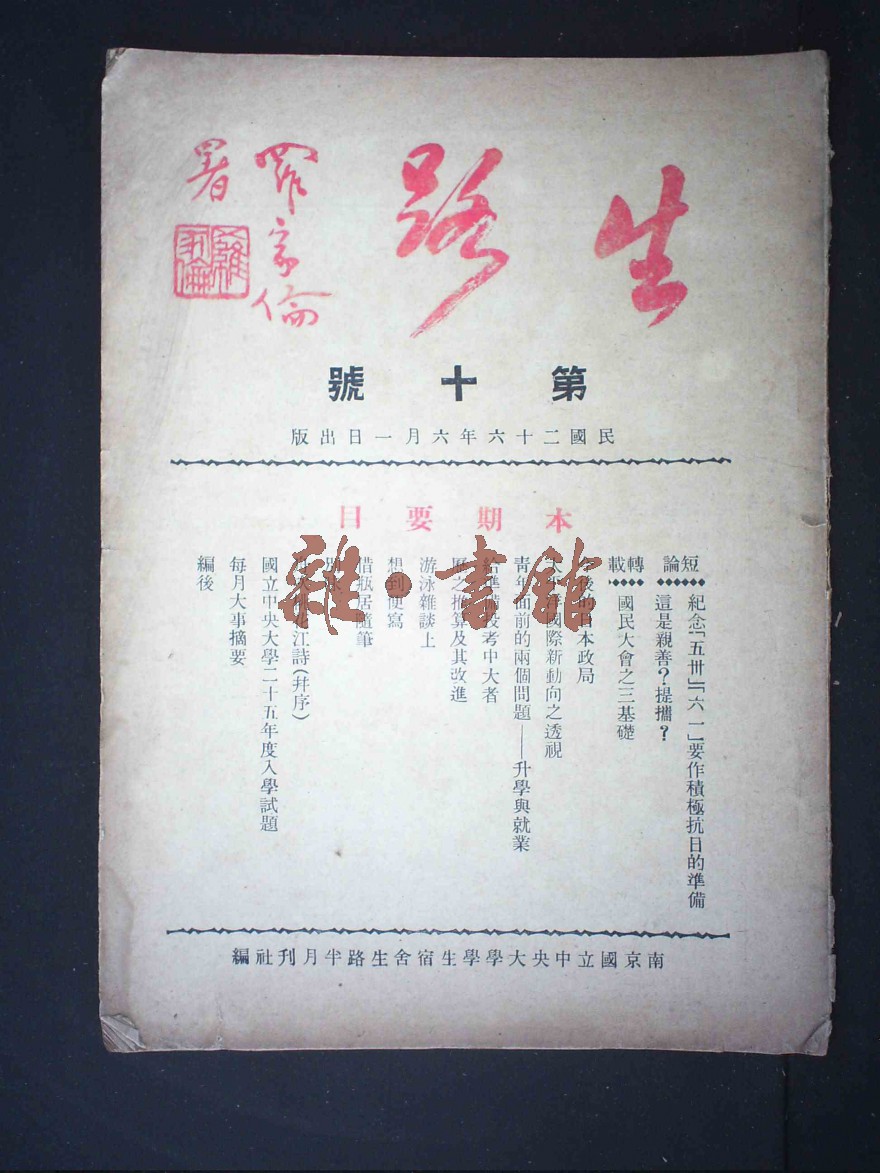 生路
羅家倫
署
羅家倫
第十號
民國二十六年六月一日出版
本期要目
短論
紀念「五卅」「六一」要作積極抗日的準備
這是親善？提攜？
轉載
國民大會之三基礎
後的日本政局
國際新動向之透視
青年面前的兩個問題——升學與就業
給準備投考中大者
曆之推算及其改進
游泳雜談上
想到便寫
借瓶居隨筆
江詩(幷序)
國立中央大學二十五年度入學試題
每月大事摘要
編後
南京國立中央大學學生宿舍生路半月刊社編
雜·書館